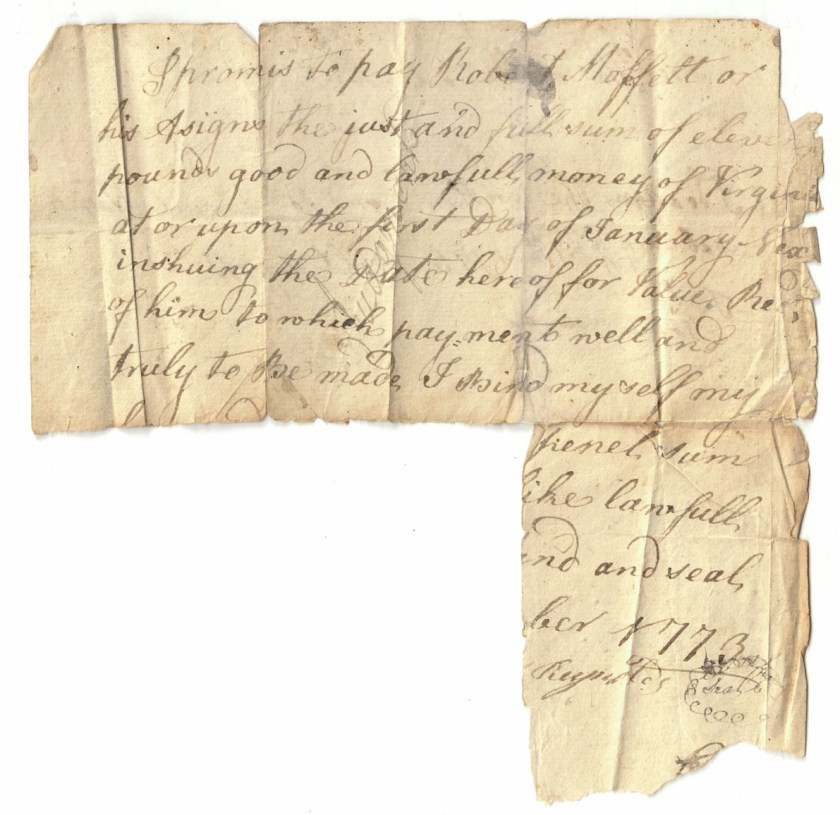 I promis to pay Robert Moffett or
his Asigns the just and full sum of eleven
pounds good and lawfull money of Virgini
at or upon the first Day of January Nex
inshuing the Date here of for Value Re
of him to which pay=ment well and
truly to Be made I Bind my self my
penel sum
like lawfull
and and seal
ber 1773
Seal